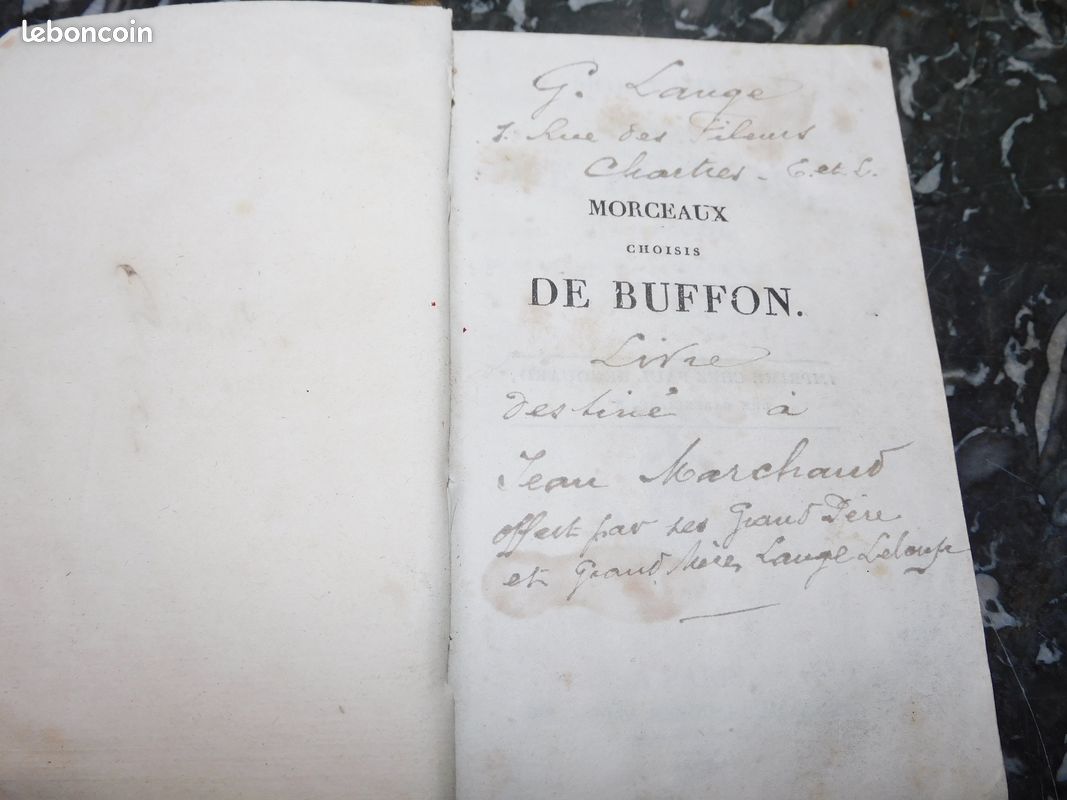 leboncoin
G. Lange
7. Rue des Fileurs
Chartres - E. et L.
MORCEAUX
CHOISIS
DE BUFFON.
Livre
destiné à
Jean Marchand
offert par ses Grand Père
et Grand Mère, Lange Leloup